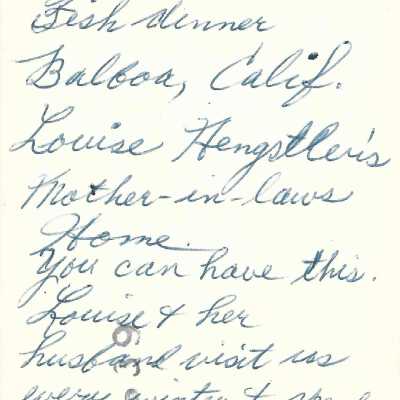 Fish dinner
Balboa, Calif.
Louise Hengstler's
Mother-in-laws
Home.
You can have this.
Louise & her
husband visit us
every winter &